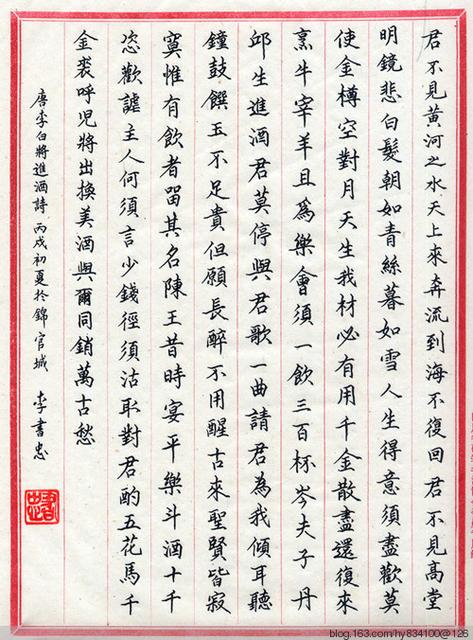 君不見黃河之水天上來奔流到海不復回君不見高堂
明鏡悲白髮朝如青絲暮如雪人生得意須盡歡莫
使金樽空對月天生我材必有用千金散盡還復來
烹牛宰羊且爲樂會須一飲三百杯岑夫子丹
邱生進酒君莫停與君歌一曲請君為我傾耳聽
鐘鼓饌玉不足貴但願長醉不用醒古來聖賢皆寂
寞惟有飲者留其名陳王昔時宴平樂斗酒十千
恣歡謔主人何須言少錢徑須沽取對君酌五花馬千
金裘呼児將出換美酒與爾同銷萬古愁
唐李白將進酒詩 丙戌初夏於錦官城 李書忠
blog.163.com/hy834100@126